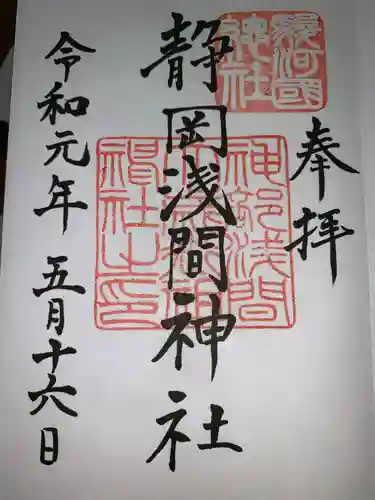 奉拝
駿河國総社
静岡浅間神社
神部浅間大歳御祖神社之印
令和元年五月十六日